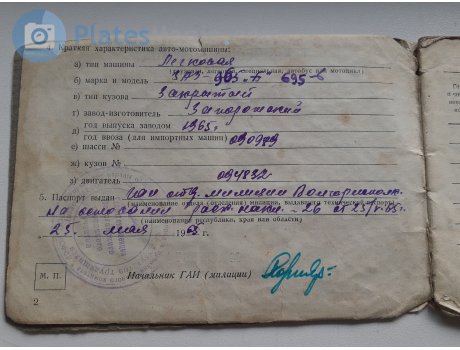 Plates
4. Краткая характеристика авто-мотомашины:
а) тип машины Легковая
(легковая, грузовая, специальная, автобус или мотоцикл)
б) марка и модель ЗАЗ 965-А 695-б
в) тип кузова Закрытый
г) завод-изготовитель Запорожский
д) год выпуска заводом 1965 г
год ввоза (для импортных машин)
е) шасси № 090979
ж) кузов №
з) двигатель 094832
5. Паспорт выдан ГАИ отд. милиции
(наименование отдела (отделения) милиции, выдавшего технический паспорт)
На основании накл. - 26 от 25/V-65г.
(наименование республики, края или области)
25. мая 1965 г.
М. П.
Начальник ГАИ (милиции)
2